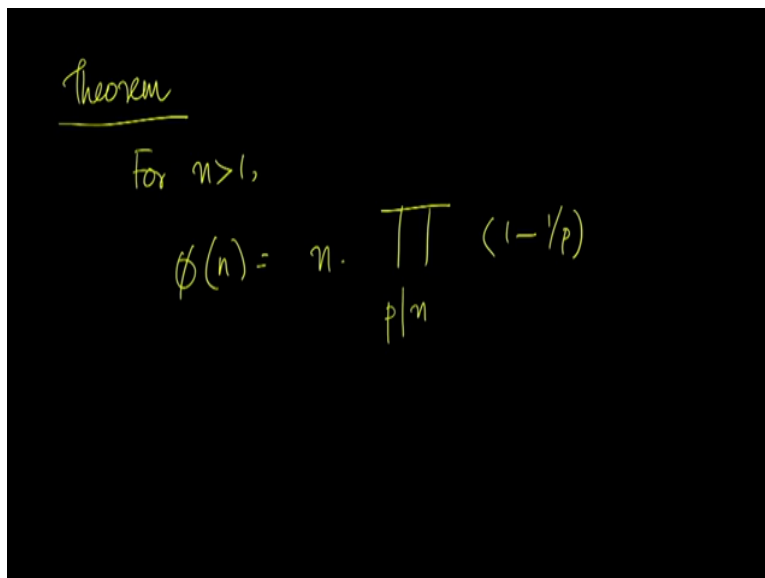 Theorem
For n>1,
φ(n) = n. ∏ (1 - 1/p)
p|n